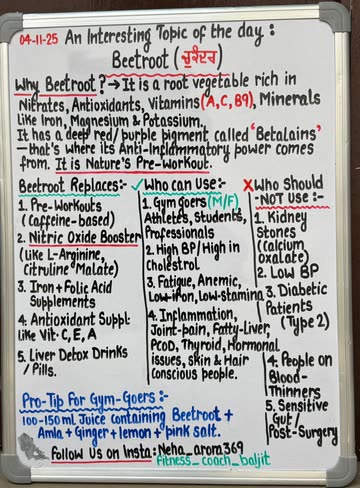 04-11-25 An Interesting Topic of the day :
Beetroot (ਚੁਕੰਦਰ)
Why Beetroot ? → It is a root vegetable rich in
Nitrates, Antioxidants, Vitamins (A, C, B9), Minerals
Like Iron, Magnesium & Potassium.
It has a deep red/purple pigment called "Betalains"
– that's where its Anti-Inflammatory power comes
from. It is Nature's Pre-Workout.
Beetroot Replaces:-
1. Pre-Workouts
(Caffeine-based)
2. Nitric Oxide Booster
(Like L-Arginine,
Citrulline Malate)
3. Iron + Folic Acid
Supplements
4. Antioxidant Suppl:
like Vit- C, E, A
5. Liver Detox Drinks
/ Pills.
✓ Who can Use:-
1. Gym goers (M/F)
Athletes, Students,
Professionals
2. High BP/High in
Cholestrol
3. Fatigue, Anemic,
Low-iron, Low-stamina
4. Inflammation,
Joint-pain, Fatty-Liver,
PCOD, Thyroid, Hormonal
issues, skin & Hair
Conscious people.
X Who Should
-NOT Use :-
1. Kidney
Stones
(Calcium
oxalate)
2. Low BP
3. Diabetic
Patients
(Type 2)
4. People on
Blood-
Thinners
5. Sensitive
Gut /
Post-Surgery
Pro-Tip For Gym-Goers :-
100-150 ml Juice Containing Beetroot +
Amla + Ginger + lemon + pink salt.
Follow Us on Insta: Neha_arora369
Fitness_coach_baljit